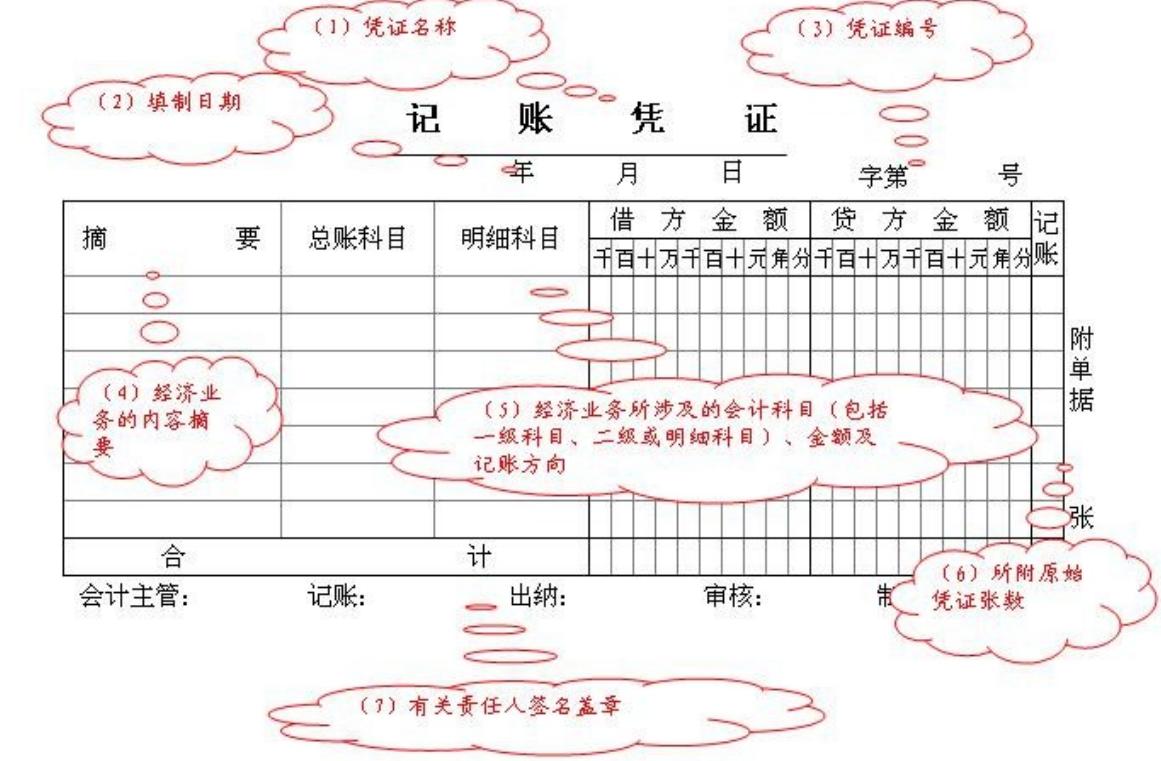 (1) 凭证名称
(3) 凭证编号
(2) 填制日期
记 账 凭 证
年 月 日 字第 号
摘 要 总账科目 明细科目 借方金额 贷方金额 记账
千百十万千百十元角分 千百十万千百十元角分
附单据 张
(4) 经济业
务的内容摘
要
(5) 经济业务所涉及的会计科目(包括
一级科目、二级或明细科目)、金额及
记账方向
合 计
(6) 所附原始
凭证张数
会计主管: 记账: 出纳: 审核: 制
(7) 有关责任人签名盖章